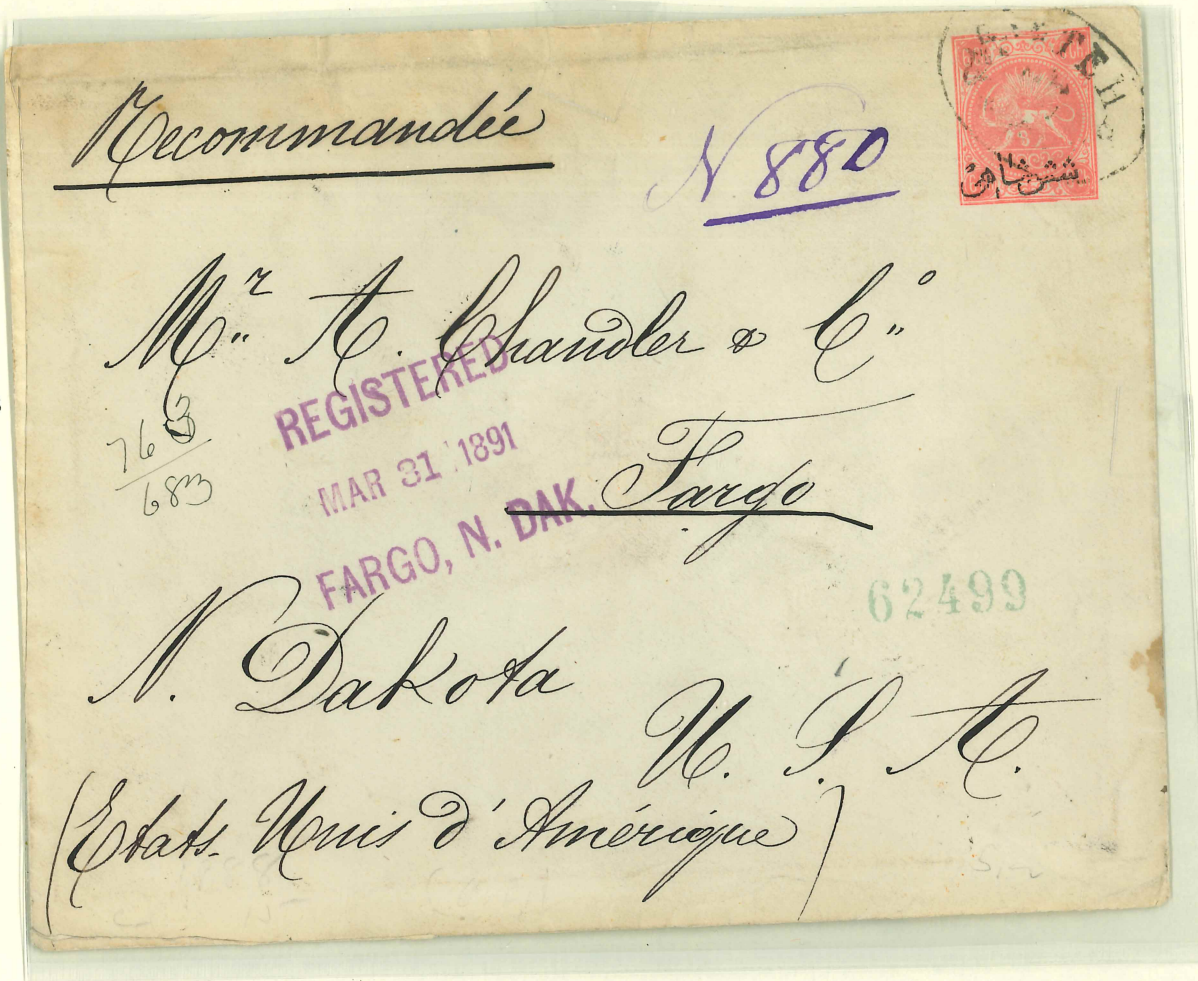 Recommandée
N 880
شش شاهی
Mr. A. Chandler & Co.
REGISTERED
763
MAR 31 1891
Fargo
683
FARGO, N. DAK.
62499
N. Dakota
U. S. A.
(Etats-Unis d'Amérique)